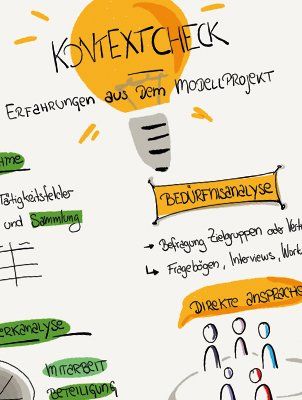 KONTEXTCHECK
ERFAHRUNGEN aus dem MODELLPROJEKT
Tätigkeitsfelder
und Sammlung
BEDÜRFNISANALYSE
→ Befragung Zielgruppen oder
Fragebögen, Interviews, Work
DIREKTE ANSPRACHE
MITARBEIT
BETEILIGUNG